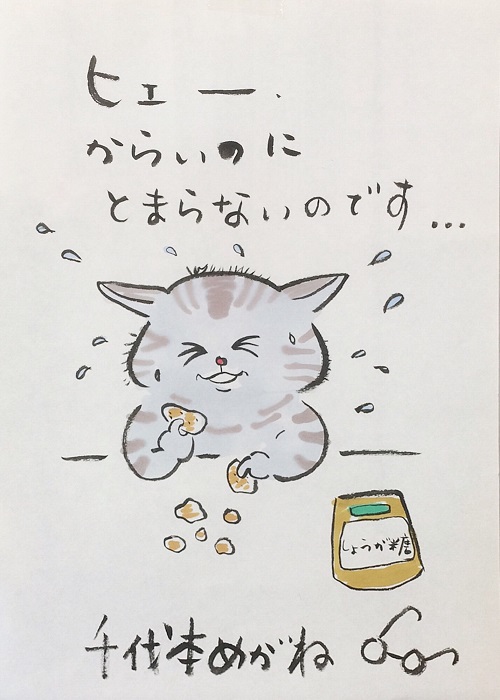 ヒェー.
からいのに
とまらないのです...
しょうが糖
千代本めがね